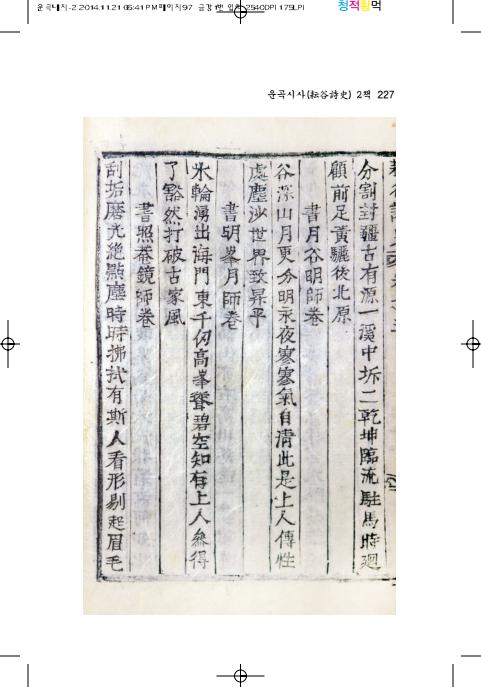 운곡대지-2 2014.11.21 05:41 PM 페이지97
2540DPI 175LPI
청적황먹
운곡시사(耘谷詩史) 2책 227
分割封疆古有源一溪中坼二乾坤臨流駐馬時廻
顧前足黃驪後北原
書月谷明師卷
谷深山月更分明永夜寥寥氣自淸此是上人傳性
處塵沙世界致昇平
書明峯月師卷
氷輪湧出海門東千仞高峯聳碧空知有上人叅得
了豁然打破古家風
書照菴鏡師卷
刮垢磨光絶點塵時時拂拭有斯人看形剔起眉毛